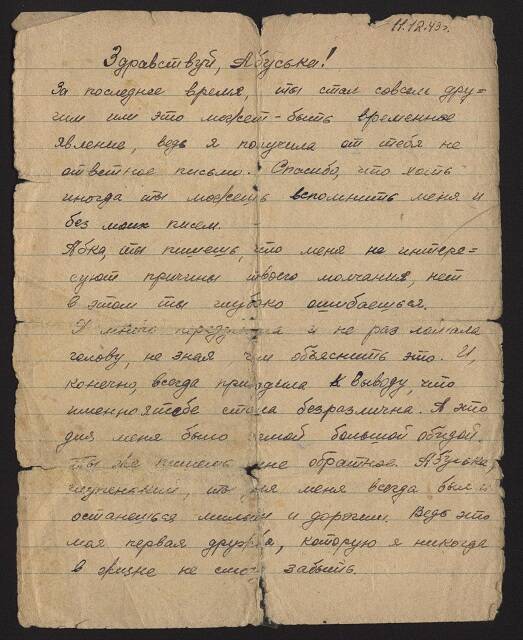 11.12.43г.
Здравствуй, Абуська!
За последнее время, ты стал совсем дру-
гим или это может-быть временное
явление, ведь я получила от тебя не
ответное письмо. Спасибо, что хоть
иногда ты можешь вспомнить меня и
без моих писем.
Абка, ты пишешь, что меня не интере-
суют причины твоего молчания, нет
в этом ты глубоко ошибаешься.
Я много передумала и не раз ломала
голову, не зная чем объяснить это. И,
конечно, всегда приходила к выводу, что
именно я тебе стала безразлична. А это
для меня было самой большой обидой.
Ты же пишешь мне обратное. Абуська,
глупенький, ты для меня всегда был и
останешься милым и дорогим. Ведь это
моя первая дружба, которую я никогда
в жизни не смогу забыть.